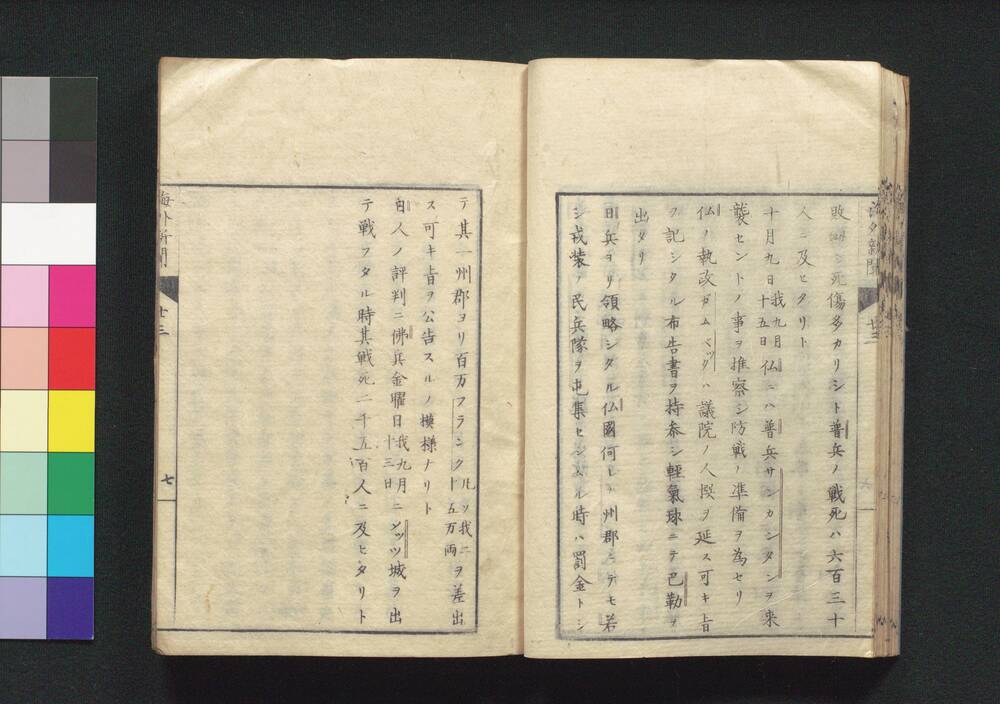 海外新聞
廿三
敗シ死傷多カリシト普兵ノ戦死ハ六百三十
人ニ及ヒタリト
十月九日我九月十五日仏ニハ普兵サンカンタンヲ来
襲セントノ事ヲ推察シ防戦ノ準備ヲ為セリ
仏ノ執政ガムベッダハ議院ノ人撰ヲ延ス可キ旨
ヲ記シタル布告書ヲ持参シ軽氣球ニテ巴勒ヲ
出タリ
日兵ヨリ領略シタル仏國何レノ州郡ニテモ若
シ戎装ノ民兵隊ヲ屯集セシムル時ハ罰金トシ
テ其一州郡ヨリ百万フランクルソ我二十五万両ヲ差出
ス可キ旨ヲ公告スルノ模様ナリト
白人ノ評判ニ佛兵金曜日我九月十三日ニメッツ城ヲ出
テ戦フタル時其戦死二千五百人ニ及ヒタリト
海外新聞
廿三
七